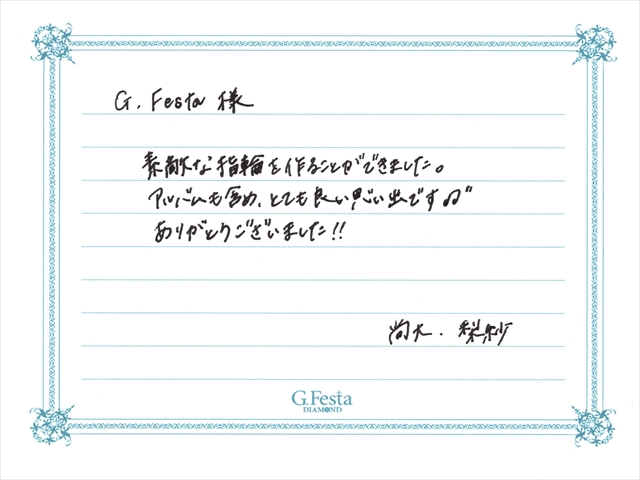 G. Festa 様
素敵な指輪を作ることができました。
アルバムも含め、とても良い思い出です♫
ありがとうございました!!
尚大. 梨紗
G.Festa
DIAMOND